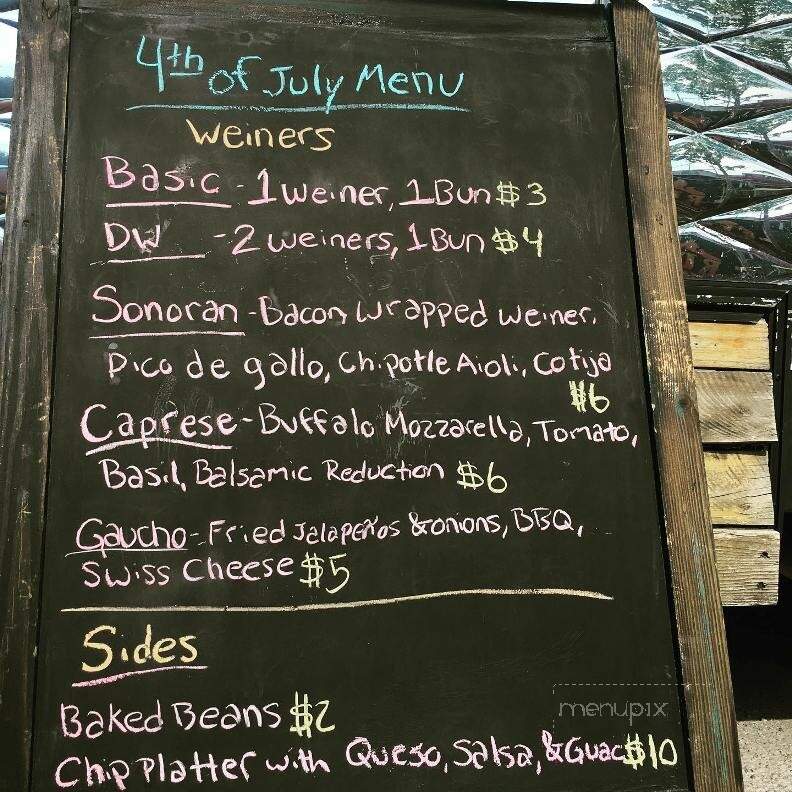 4th of July Menu
Weiners
Basic - 1 Weiner, 1 Bun $3
DW - 2 weiners, 1 Bun $4
Sonoran - Bacon Wrapped weiner,
Pico de gallo, Chipotle Aioli, Cotija
$6
Caprese - Buffalo Mozzarella, Tomato,
Basil, Balsamic Reduction $6
Gaucho - Fried Jalapeños & onions, BBQ,
Swiss Cheese $5
Sides
Baked Beans $2
Chip Platter with Queso, Salsa, & Guac $10
menupix